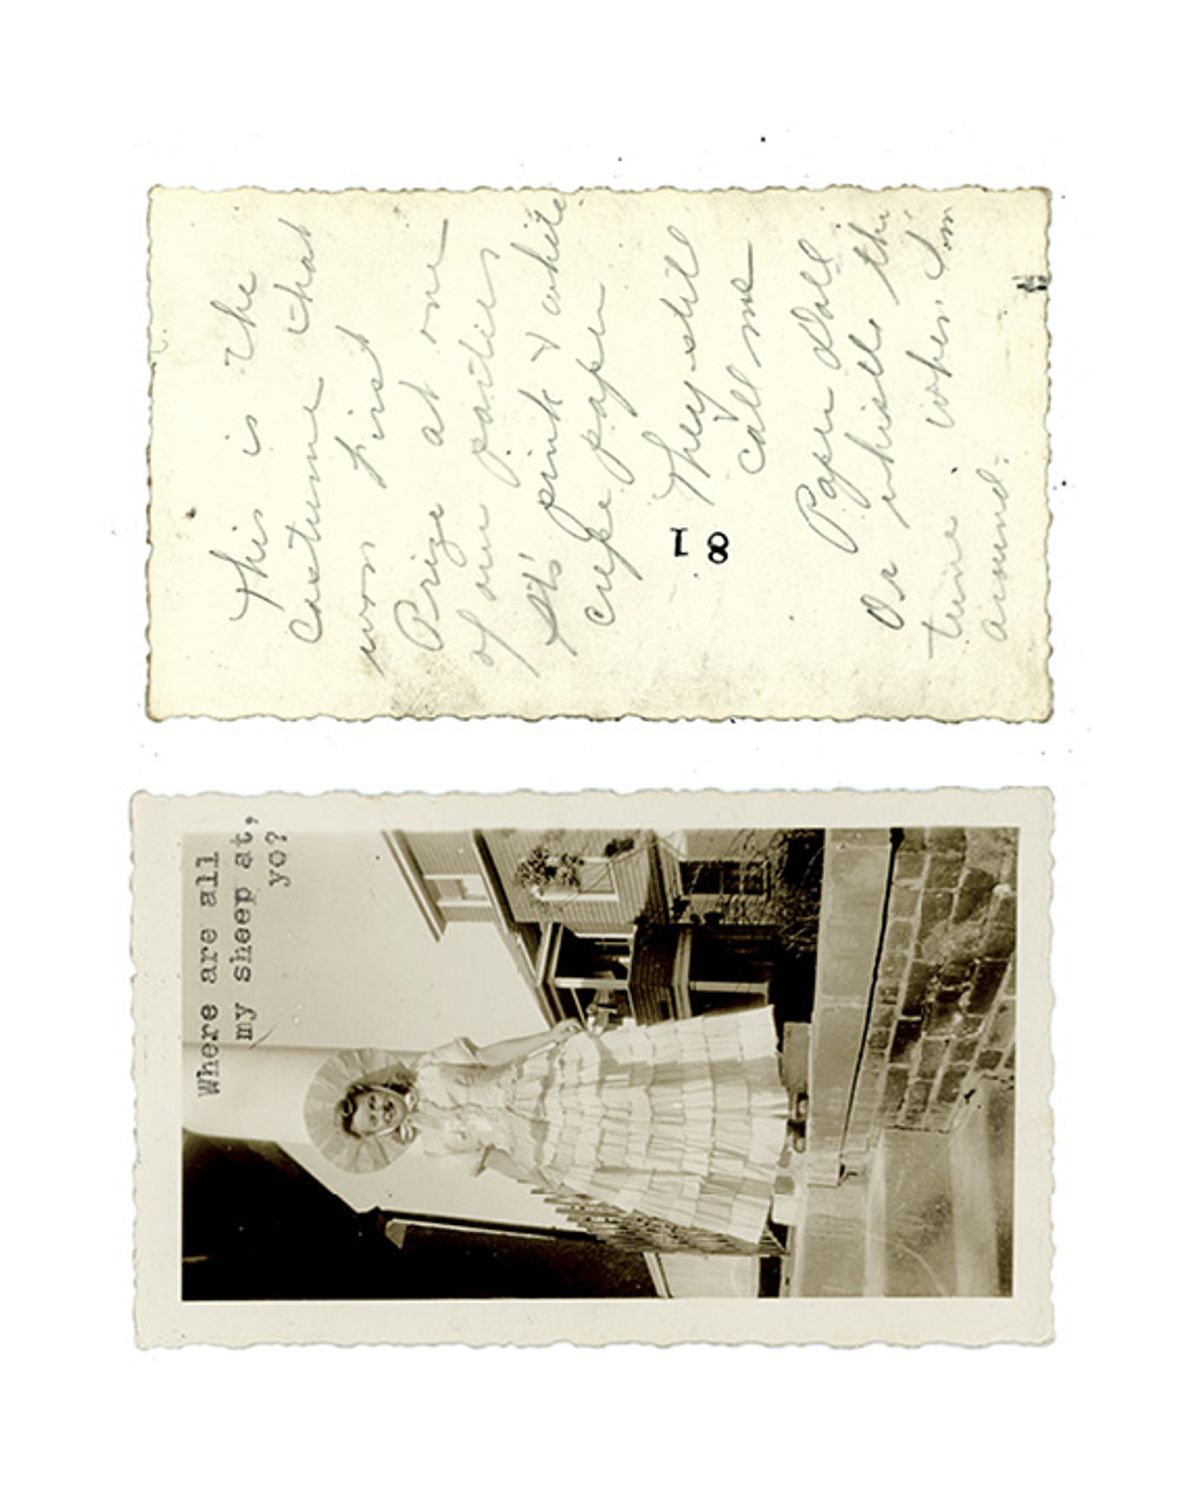 This is the
Costume that
won First
Prize at one
of our parties
It's pink & white
crepe paper
They still
call me
Paper Doll
Or whistle the
tune when I'm
around.
81
Where are all
my sheep at,
yo?